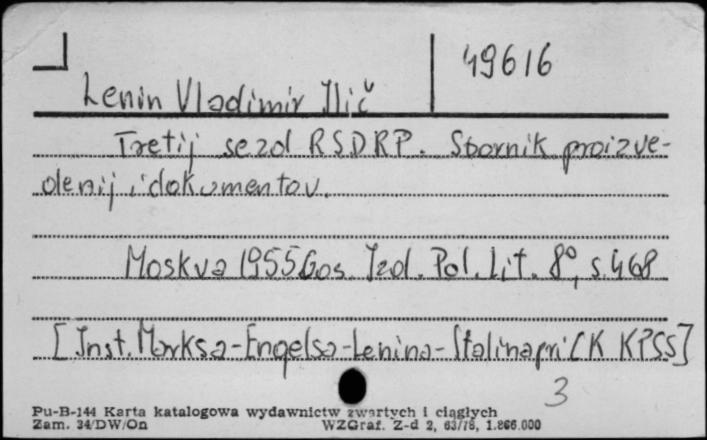 49616
Lenin Vladimir Ilič
Tretij sezd RSDRP. Sbornik proizve-
denij i dokumentov.
Moskva 1955 Gos. Izd. Pol. Lit. 8°, s. 468
[Inst. Marksa-Engelsa-Lenina-Stalina pri CK KPSS]
3
Pu-B-144 Karta katalogowa wydawnictw zwartych i ciągłych
Zam. 34/DW/On WZGraf. Z-d 2, 63/78, 1.866.000